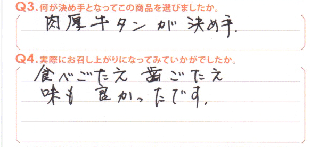 Q3.何が決め手となってこの商品を選びましたか。
肉厚牛タンが決め手.
Q4.実際にお召し上がりになってみていかがでしたか。
食べごたえ 歯ごたえ
味も良かったです.